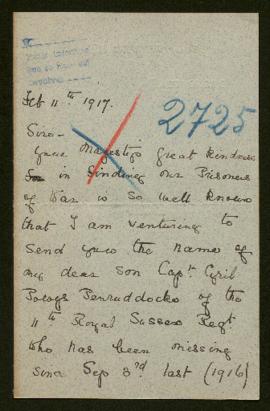 Feb 11th 1917.
2725
Sire -
Your Majesty's great kindness
in finding our Prisoners
of War is so well known
that I am venturing to
send you the name of
my dear son Capt. Cyril
Powys Penruddocke of the
11th Royal Sussex Regt
who has been missing
since Sep 3rd last (1916)